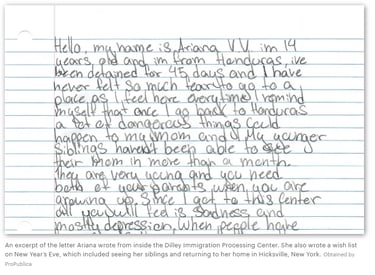 Hello, my name is Ariana V.V. im 14
years old and im from Honduras, ive
been detained for 45 days and I have
never felt so much fear to go to a
place as I feel here everytime I remind
myself that once I go back to Honduras
a lot of dangerous things could
happen to my mom and My younger
siblings haven't been able to see
their mom in more than a month.
They are very young and you need
both of your parents when you are
growing up. Since I got to this Center
all you will feel is sadness and
mostly depression, when people have
An excerpt of the letter Ariana wrote from inside the Dilley Immigration Processing Center. She also wrote a wish list
on New Year's Eve, which included seeing her siblings and returning to her home in Hicksville, New York. Obtained by
ProPublica